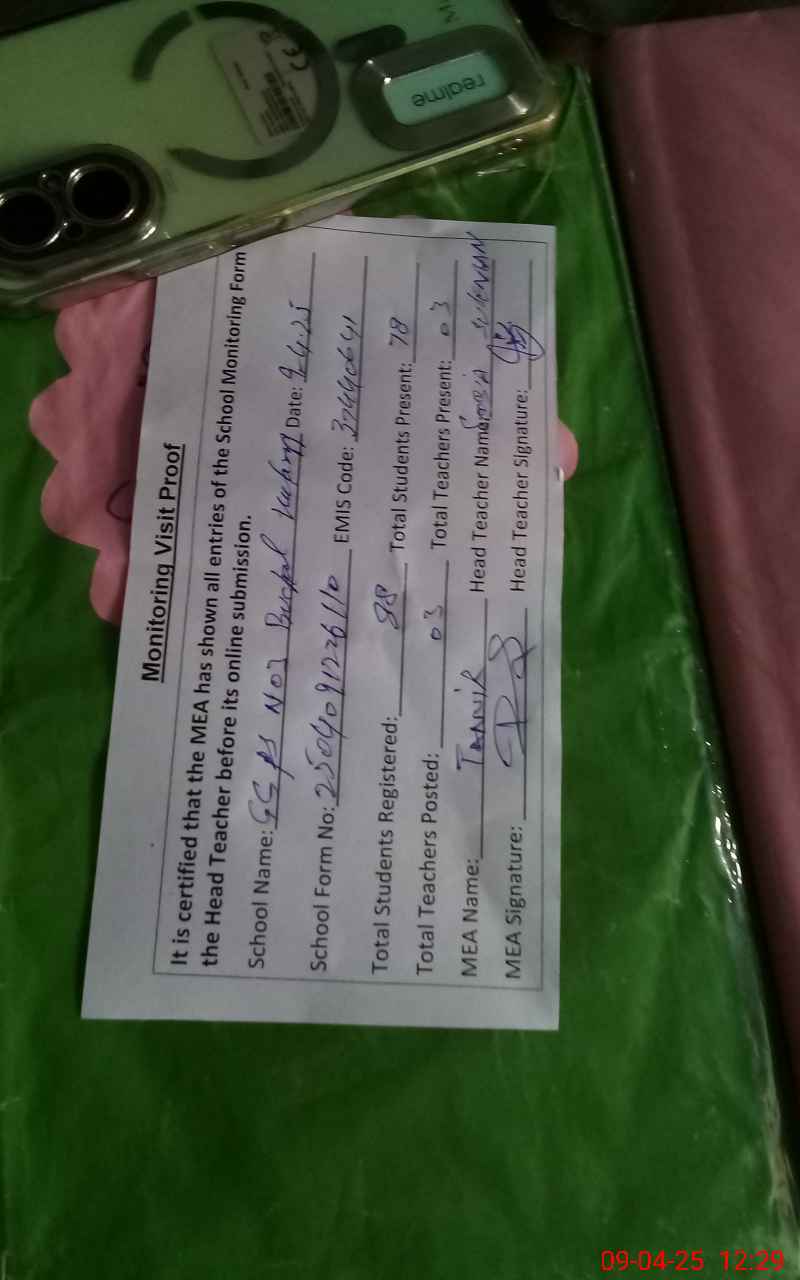 realme
Monitoring Visit Proof
It is certified that the MEA has shown all entries of the School Monitoring Form
the Head Teacher before its online submission.
School Name: GGPS No 3 Date: 9-4-25
School Form No: EMIS Code: 37440641
Total Students Registered: 88 Total Students Present: 78
Total Teachers Posted: 03 Total Teachers Present: 03
MEA Name: Head Teacher Name:
MEA Signature: Head Teacher Signature:
09-04-25 12:29